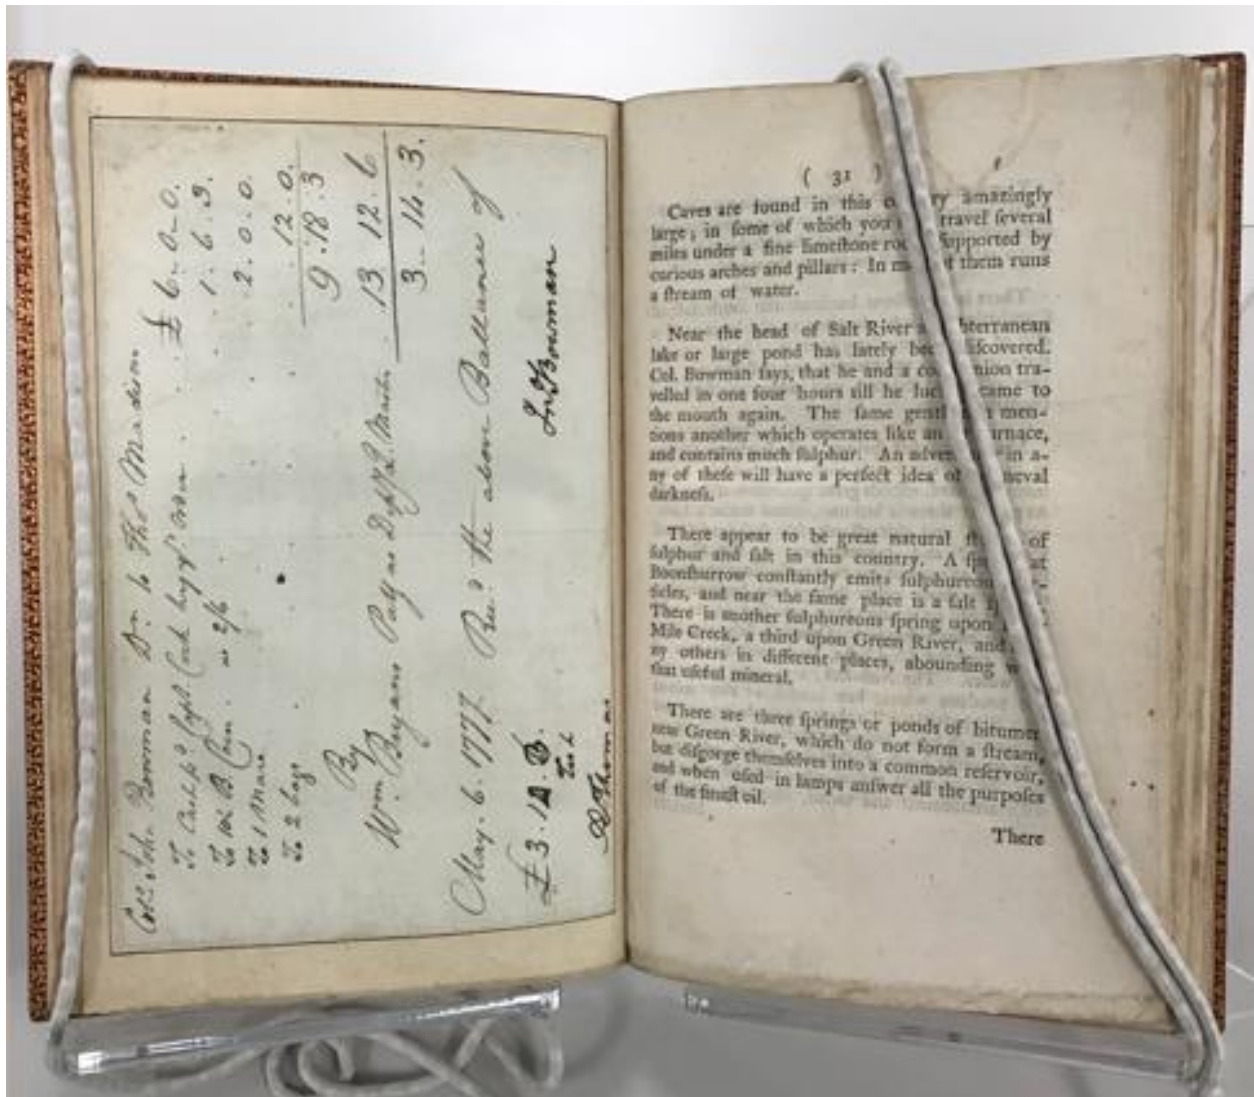 Colo. John Bowman Dr. to Thos Madison
To Cash pd Capt. order £ 6-0-0.
To B. Corn at 2/6 1.6.3.
To 1 Mare 2.0.0.
To 2 bags 12.0.
9.18.3
By
Wm. Bryans Pay as 13 12.6
3-14.3.
May. 6. 1777. Recd. the above Ballance of
£3.14.3.
Jno Bowman
Test
( 31 )
Caves are found in this amazingly
large; in ſome of which you travel ſeveral
miles under a fine limeſtone ſupported by
curious arches and pillars: In of them runs
a ſtream of water.
Near the head of Salt River
lake or large pond has lately diſcovered.
Col. Bowman ſays, that he and a tra-
velled in one four hours till he came to
the mouth again. The ſame men-
tions another which operates like an
and contains much ſulphur. An in a-
ny of theſe will have a perfect idea of
darkneſs.
There appear to be great natural of
ſulphur and ſalt in this country. A at
Boonſburrow conſtantly emits
ticles, and near the ſame place is a ſalt
There is another ſulphureous ſpring upon
Mile Creek, a third upon Green River, and
ny others in different places, abounding
that uſeful mineral.
There are three ſprings or ponds of bitumen
near Green River, which do not form a ſtream,
but diſgorge themſelves into a common reſervoir,
and when uſed in lamps anſwer all the purpoſes
of the fineſt oil.
There